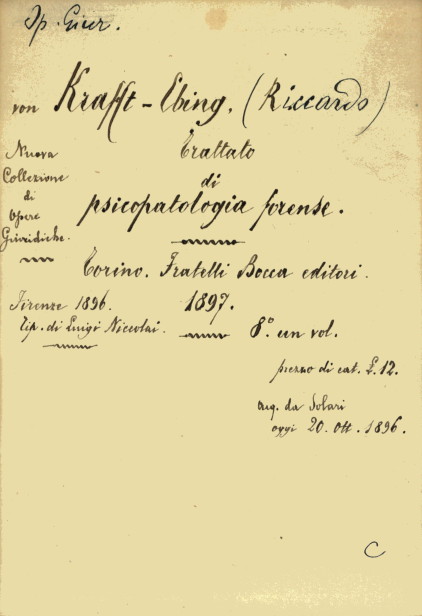 Op. Giur.
von Krafft-Ebing, (Riccardo)
Trattato
di
psicopatologia forense.
Nuova
Collezione
di
Opere
Giuridiche.
Torino. Fratelli Bocca editori.
1897.
Firenze 1896.
Tip. di Luigi Niccolai.
8.º un vol.
prezzo di cat. L. 12.
acq. da Solari
oggi 20. Ott. 1896.
C